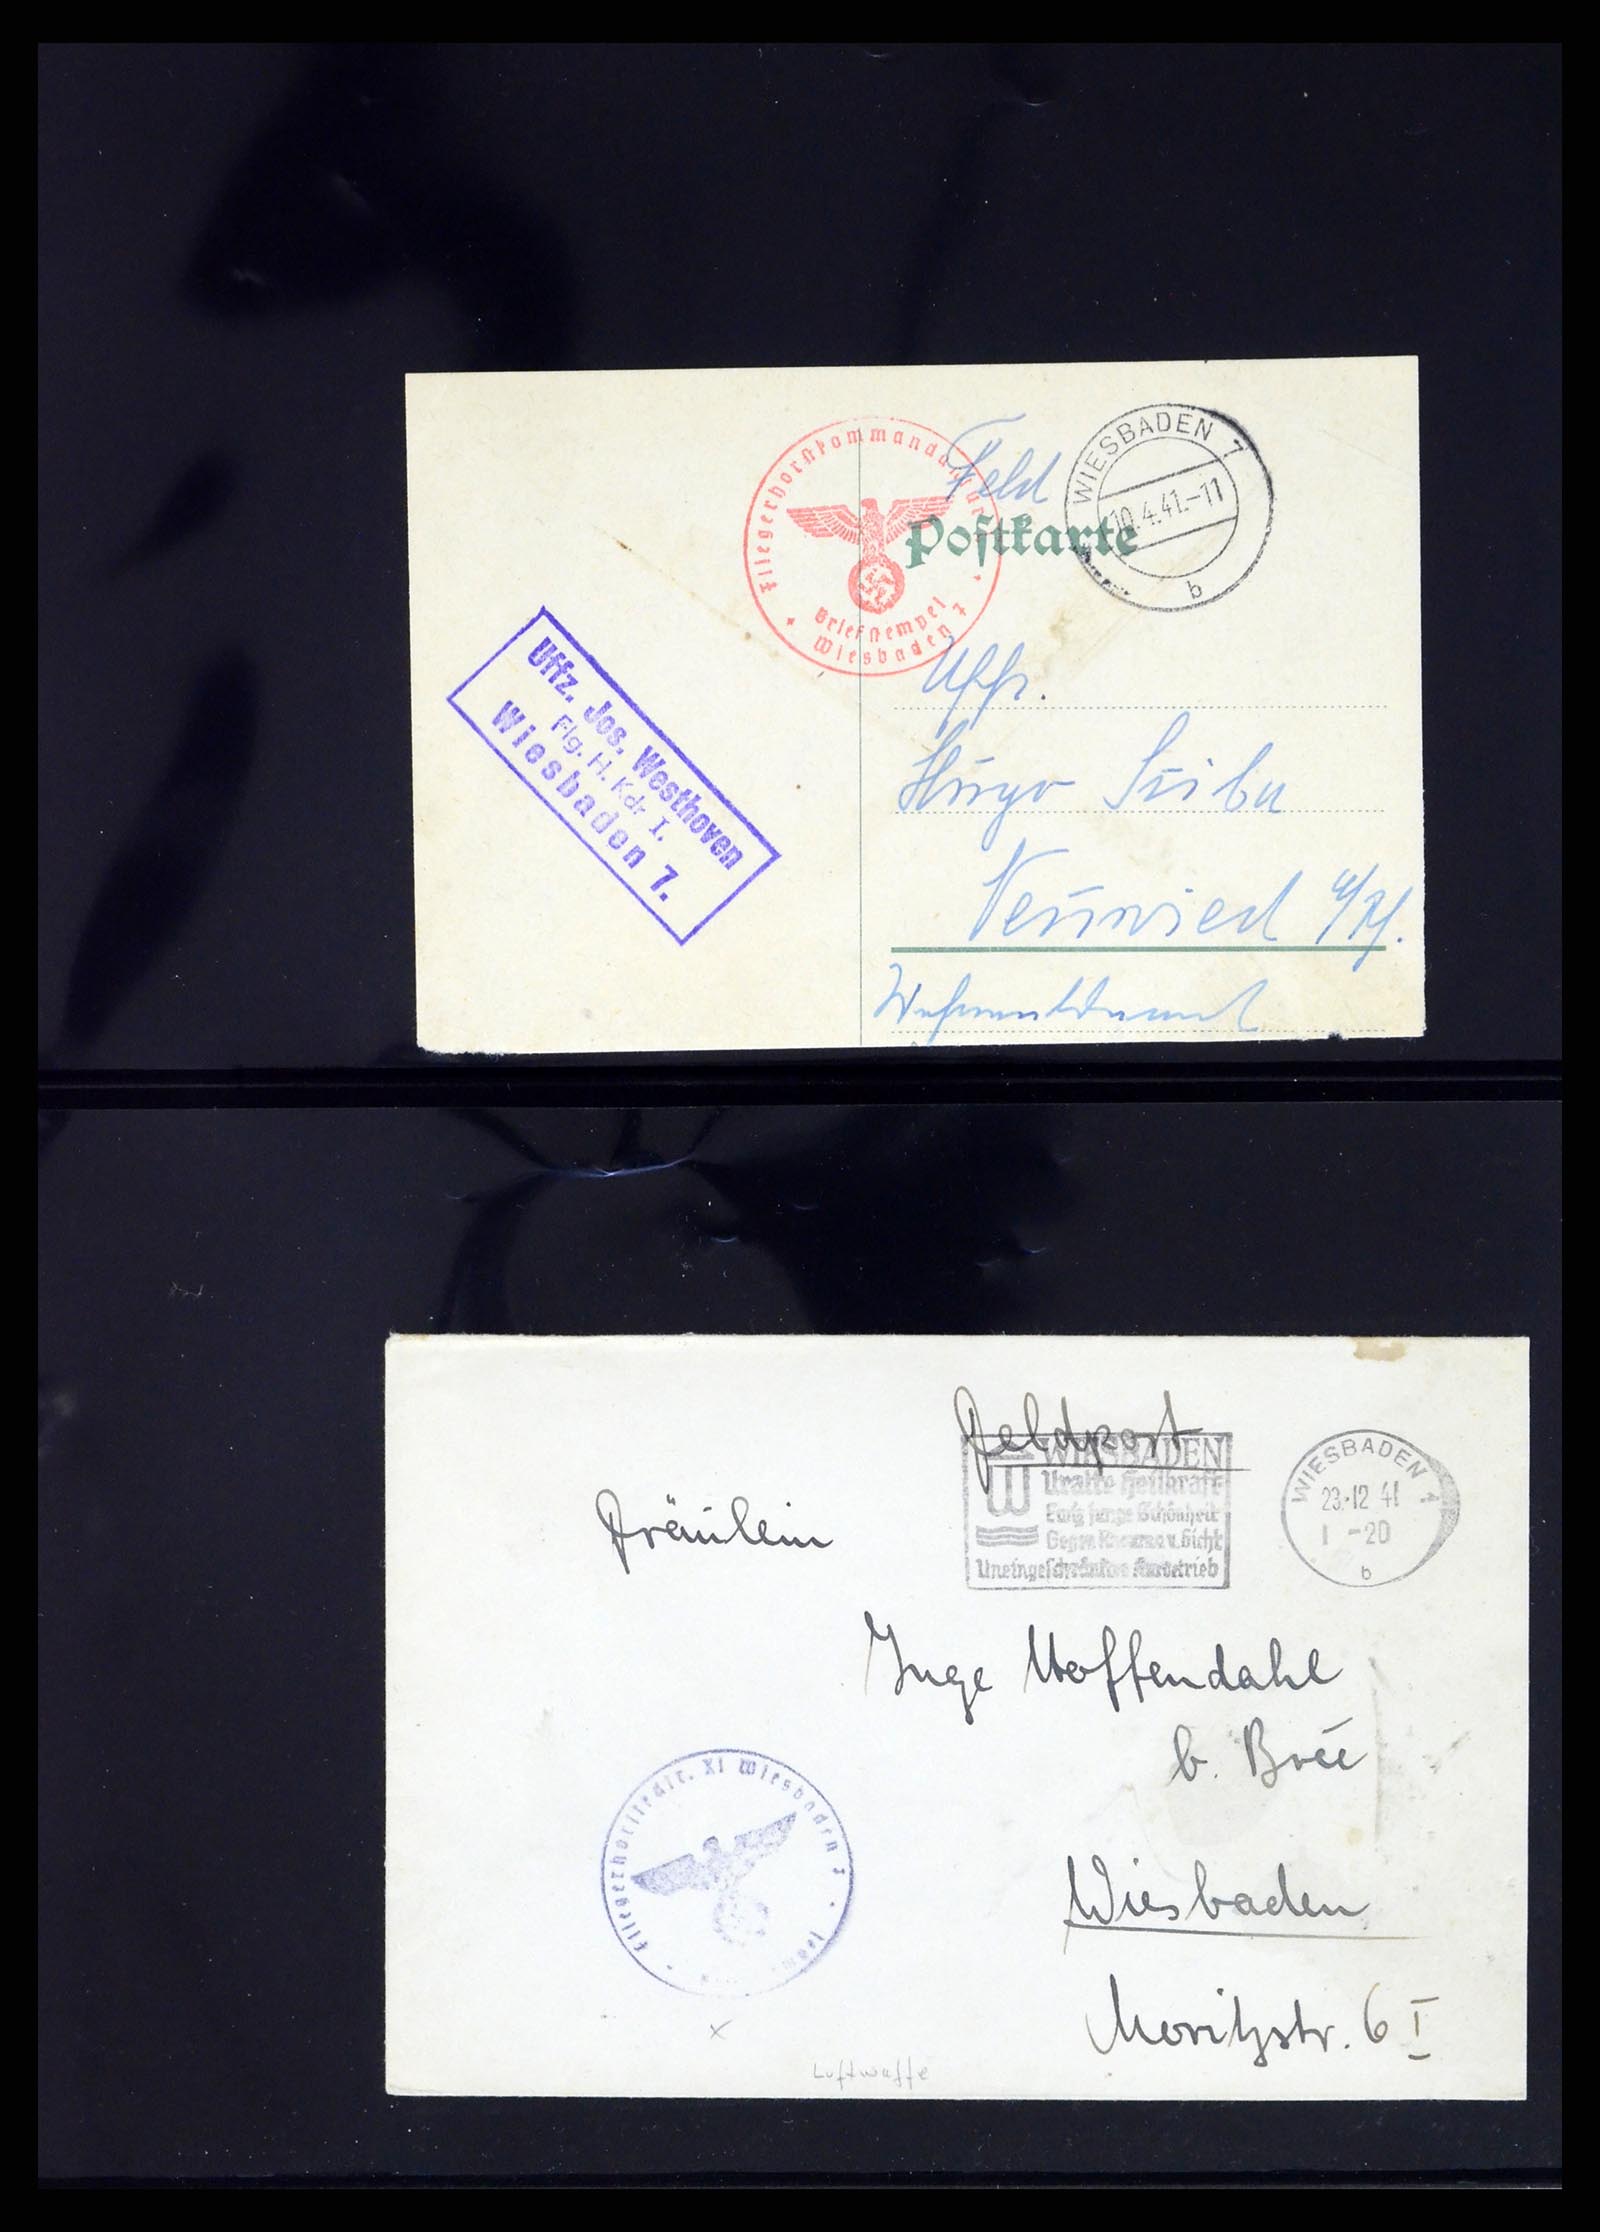 Fliegerhorstkommandantur
Briefstempel
Wiesbaden 7
Feld
Postkarte
WIESBADEN 7
10.4.41.-11
b
Uffz. Jos. Westhoven
Flg. H. Kdr I.
Wiesbaden 7.
Uffz.
Hugo
Neuwied a/Rh.
Wehrmeldeamt
Feldpost
WIESBADEN
Uralte Heilkraft
Ewig junge Schönheit
Gegen Rheuma u. Gicht
Uneingeschränkter Kurbetrieb
WIESBADEN 1
23.-12 41
-20
b
Fräulein
Inge Hoffendahl
b. Brée
Wiesbaden
Moritzstr. 6 I
XI Wiesbaden
Luftwaffe